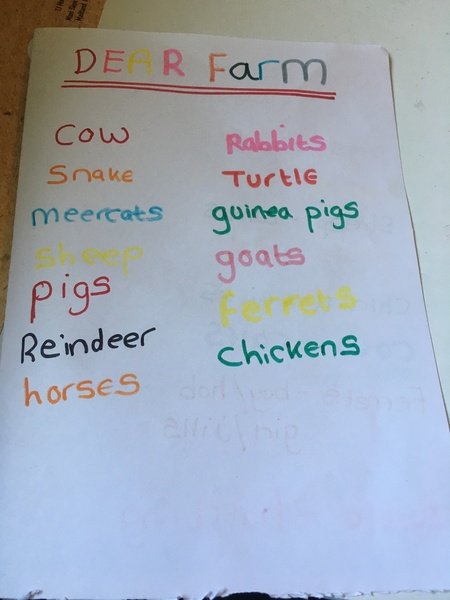 DEAR Farm
Cow
Snake
meercats
sheep
pigs
Reindeer
horses
Rabbits
TURTLE
guinea pigs
goats
ferrets
chickens